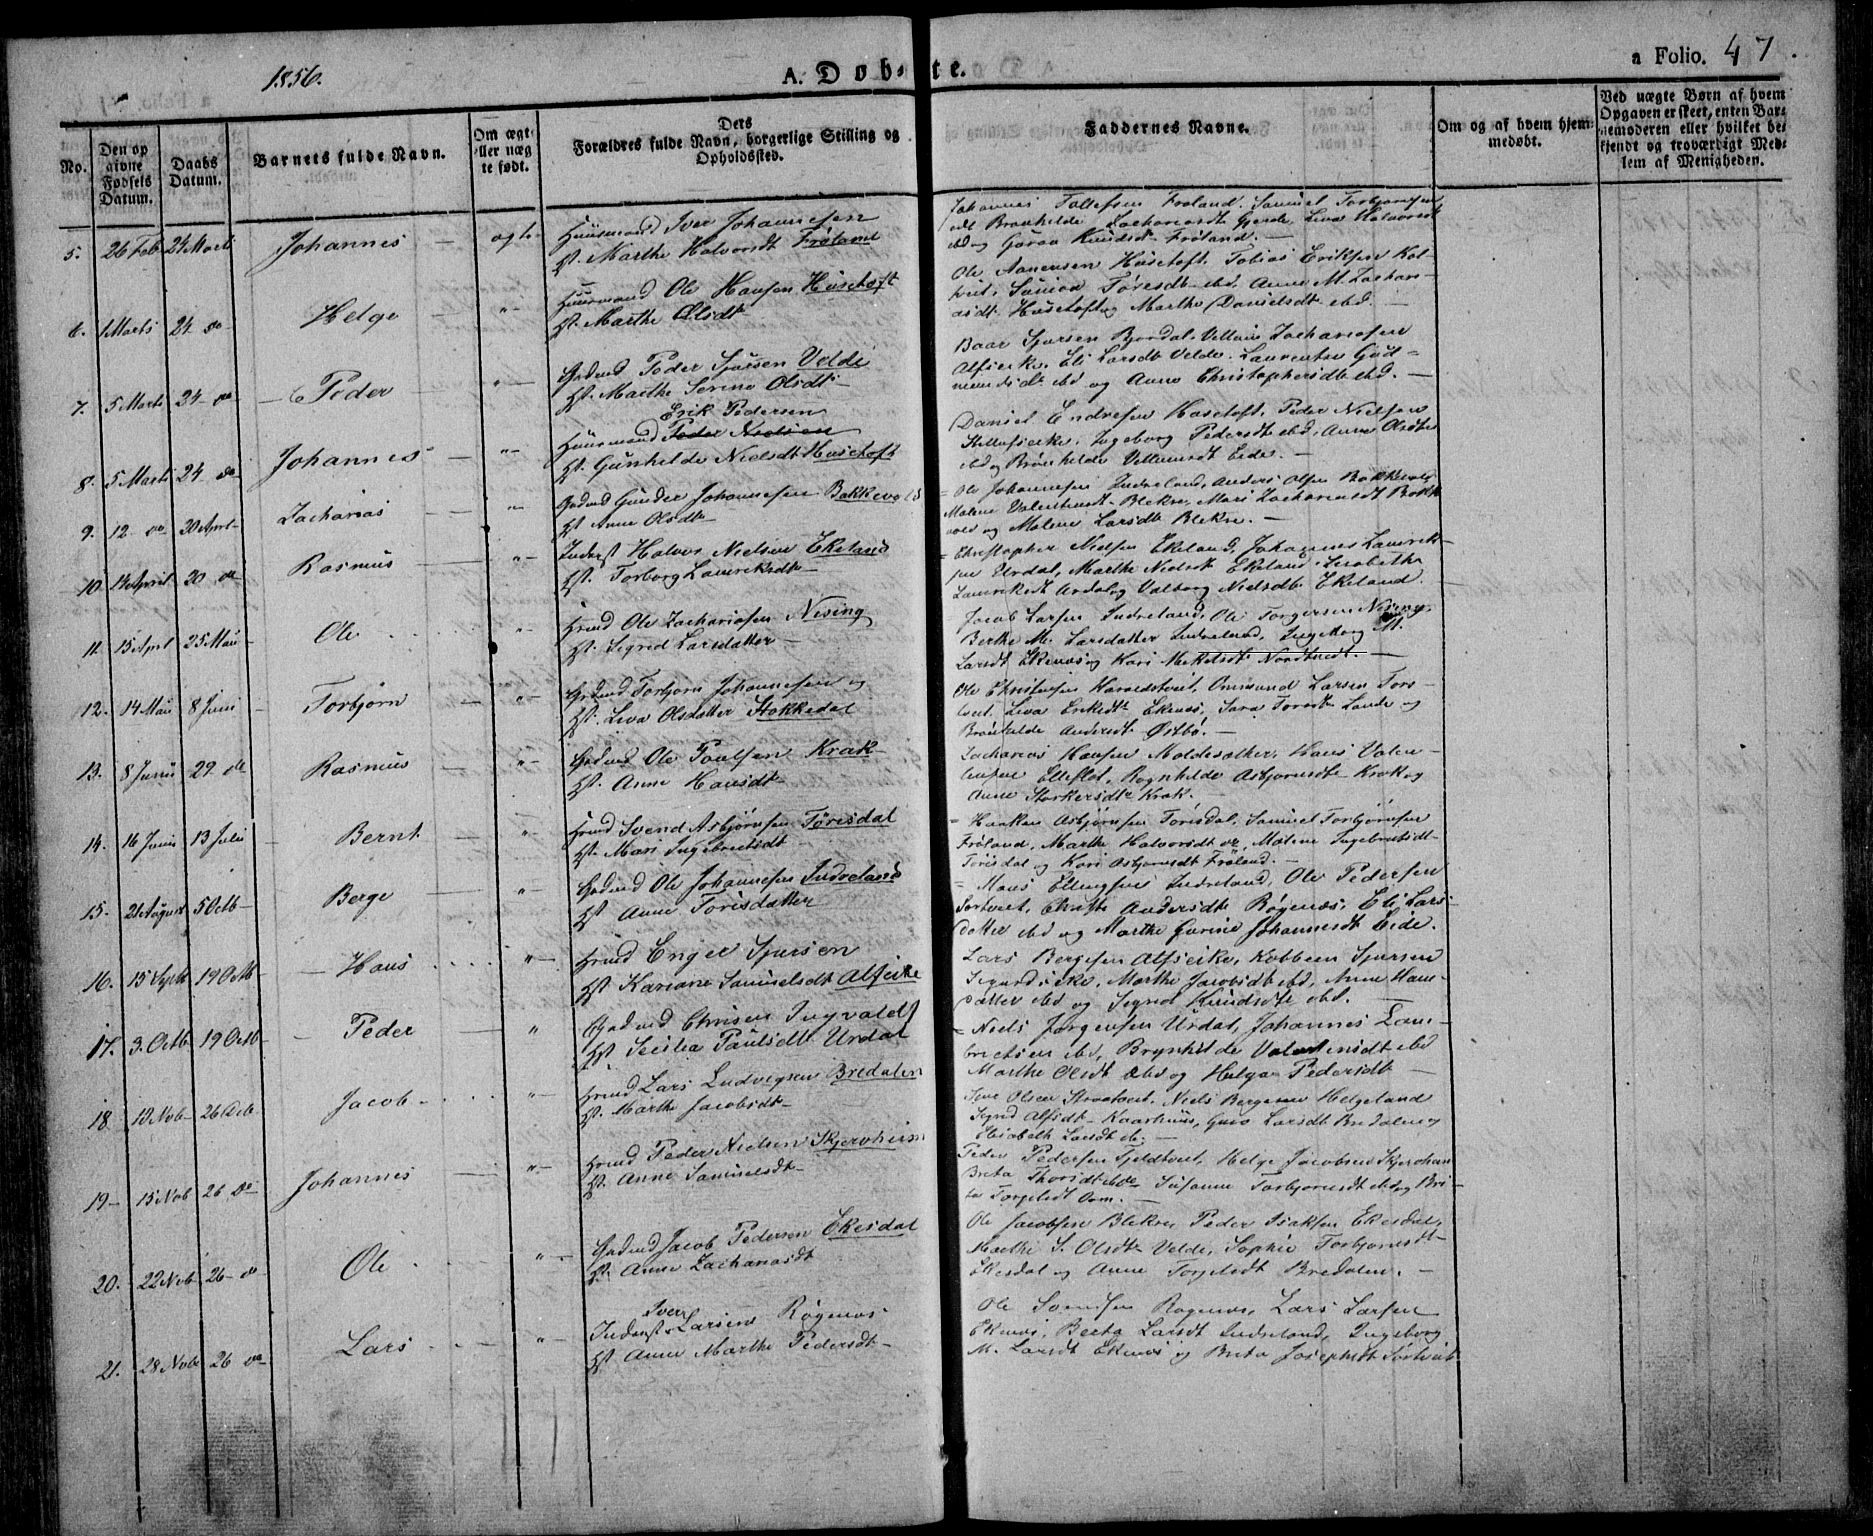 1856.
A. Døb-
te.
a Folio. 47.
No.
Den op
givne
Fødsels
Datum.
Daabs
Datum.
Barnets fulde Navn.
Om ægt-
eller uæg
te født.
Dets
Forældres fulde Navn, borgerlige Stilling og
Opholdssted.
Faddernes Navne.
Om og af hvem hjem-
medøbt.
Ved uægte Børn af hvem
Opgaven er skeet, enten Bar-
nemoderen eller hvilket be-
kjendt og troværdigt Med-
lem af Menigheden.
5. 26 Feb 24 Marts Johannes — ægte- Huusmand Iver Johannesen
H. Marthe Halvorsdt Frøland
Johannes Tollefsen Frøland. Samuel Torbjørnsen
Brønhilde Zachariasdt Gjerde, Liva Halvorsdt
ibd og Guroe Knudsdt Frøland. —
6. 1 Marts 24 do- Helge — "— Huusmand Ole Hansen Hüsetoft
H. Marthe Olsdt
Ole Aanensen Hüsetoft, Tobias Eriksen Kol-
tveit, Toresdt ibd, Anne M. Zachari-
asdt. Husetoft og Marthe Danielsdt ibd. —
7. 5 Marts 24 do — Peder "— Gdmd Peder Sjursen Velde
H. Marthe Serine Olsdt-
Baar Sjursen Bjordal, Villum Zachariasen
Alfseike. Eli Larsdt Velde. Laurentse Gud-
mundsdt ibd og Anne Christophersdt ibd. —
8. 5 Marts 24 do Johannes — "—
Erik Pedersen
Huusmand Peder Nielsen
H. Gunhilde Nielsdt Husetoft
Daniel Endresen Husetoft. Peder Nielsen
Ingeborg Pedersdt ibd, Anne Olsdtr
ibd og Brønhilde Villumsdt Eide. —
9. 12 do 20 April- Zacharias — "— Gdmd Gunder Johannesen Bakkevold
H. Anne Olsdt-
- Ole Johannesen Indreland, Anders Olsen Bakkevold
Malene Valentinsdt Blekre, Mari Zachariasdt Bakk
vold og Malene Larsdt Blekre. —
10. 14 April 20 do Rasmus — "— Inderst Halvor Nielsen Ekeland
H. Torborg Lauriksdt-
- Christopher Nielsen Ekeland, Johannes Laurik-
sen Urdal, Marthe Nielsdt Ekeland, Lisabetha
Lauriksdt Ardal og Valborg Nielsdt Ekeland.
11. 15 April 25 Mai- Ole "— Hmd Ole Zachariasen Nesing
H. Sigrid Larsdatter —
Jacob Larsen Indreland, Ole Torgersen Nesing,
Berthe M. Larsdatter Indreland, Ingeborg M.
Larsdt Ekenes og Kari Mikelsdt Nordtvedt. —
12. 14 Mai 8 Juni - Torbjørn — "— Gdmd Torbjørn Johannesen og
H. Liva Olsdatter Stokkedal
Ole Christensen Haraldstveit, Ommund Larsen Tors-
tveit. Liva Eriksdt Ekenes, Sara Toresdt Lande og
Brønhilde Andersdt Østbø. —
13. 8 Junii 29 do Rasmus — "— Gdmd Ole Poulsen Krak-
H. Anne Hansdt-
Zacharias Hansen Moldesæther, Hans Valen-
tinsen Elleflot, Rognhilde Asbjørnsdt- Krak og
Anne Størkersdt- Krak.
14. 16 Juni 13 Julii - Bernt — " Hmd Svend Asbjørnsen Tørisdal
H. Mari Ingebretsdt —
- Haaken Asbjørnsen Torisdal, Samuel Torbjørnsen
Frøland, Marthe Halvorsdt do, Malene Ingebretsdt-
Torisdal og Kari Asbjørnsdt Frøland. —
15. 21 August 5 Octb - Berge — "— Gdmd Ole Johannesen Indreland
H Anne Torisdatter
- Mons Ellingsen Indreland, Ole Pedersen
Sortveit, Christi Andersdt Røgenes, Eli Lars-
datter ibd og Marthe Gurine Johannesdt Eide.
16. 15 Septb 19 Octb — Hans "— Hmd Engel Sjursen
H Kariane Samuelsdt Alfseike
Lars Bergesen Alfseike, Kolbeen Sjursen
Marthe Jacobsdt ibd, Anne Hans-
datter ibd og Sigrid Knudsdt ibd.
17. 3. Octb 19 Octb - Peder — " Gadmd Chrisen Ingvalds
H Secilia Paulsdt Urdal
- Niels Jørgensen Urdal, Johannes Lau-
britsen ibd, Brynhilde Valentinsdt ibd
Marthe Olsdt ibd og Helga Pedersdt —
18. 10 Nob 26 Dcb Jacob - "— Hmd Lars Ludvigsen Bredalen
H. Marthe Jacobsdt-
Olsen Niels Bergesen Helgeland
Sigrid Alfsdt- Kaarhuus, Guro Larsdt Bredalen og
Elisabeth Larsdt do. —
19— 15 Nob 26 do Johannes — "— Hmd Peder Nielsen Skjerveheim
H Anne Samuelsdt-
Peder Pedersen Helge Jacobsen Skjerehim
Breta Thorsdt ibd Susanne Torbjørnsdt ibd og Bri-
ta Torgilsdt Oem. —
20. 22 Nob 26- do Ole "— Gadmd Jacob Pedersen Ekesdal
H. Anne Zachariasdt
Ole Jacobsen Blekre, Peder Isaksen Ekesdal,
Marthe S. Olsdt Velde, Sophie Torbjørnsdt
Ekesdal og Anne Torgilsdt Bredalen. —
21. 28 Nobr 26 do Lars — "
Iver
Inderst Larsen Røgenes
H Anne Marthe Pedersdt-
Ole Svensen Rogenes, Lars Larsen
Ekenes, Berta Larsdt Indreland, Ingeborg
M. Larsdt Ekenes og Brita Josephsdt Sørtveit